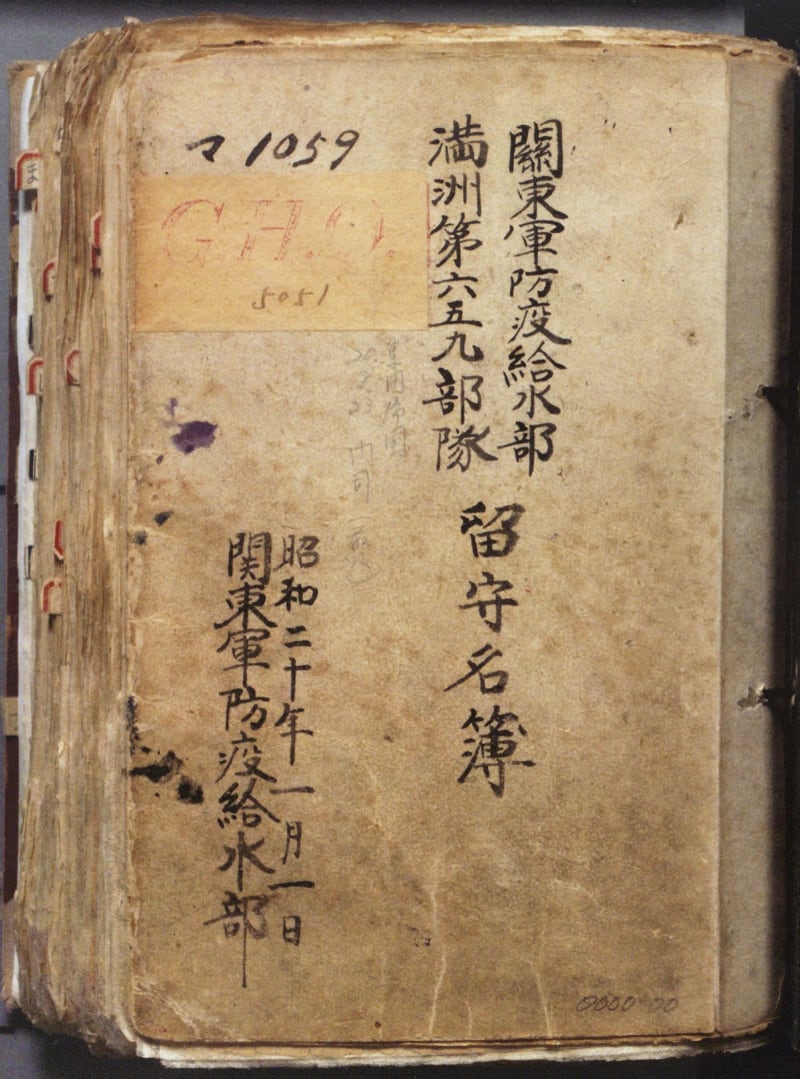 關東軍防疫給水部
満洲第六五九部隊
留守名簿
マ 1059
G.H.Q.
5051
昭和二十年一月一日
関東軍防疫給水部
ま